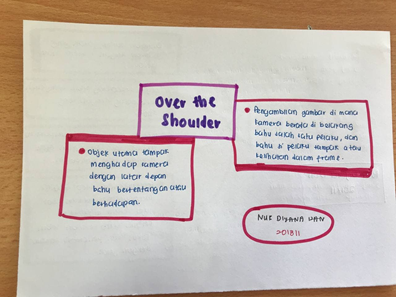 Over the
Shoulder
Pengambilan gambar di mana
kamera berada di belakang
bahu salah satu pelaku, dan
bahu si pelaku tampak atau
kelihatan dalam frame.
Objek utama tampak
menghadap kamera
dengan latar depan
bahu bertentangan atau
berhadapan.
NUR DIYANA WAN
201811